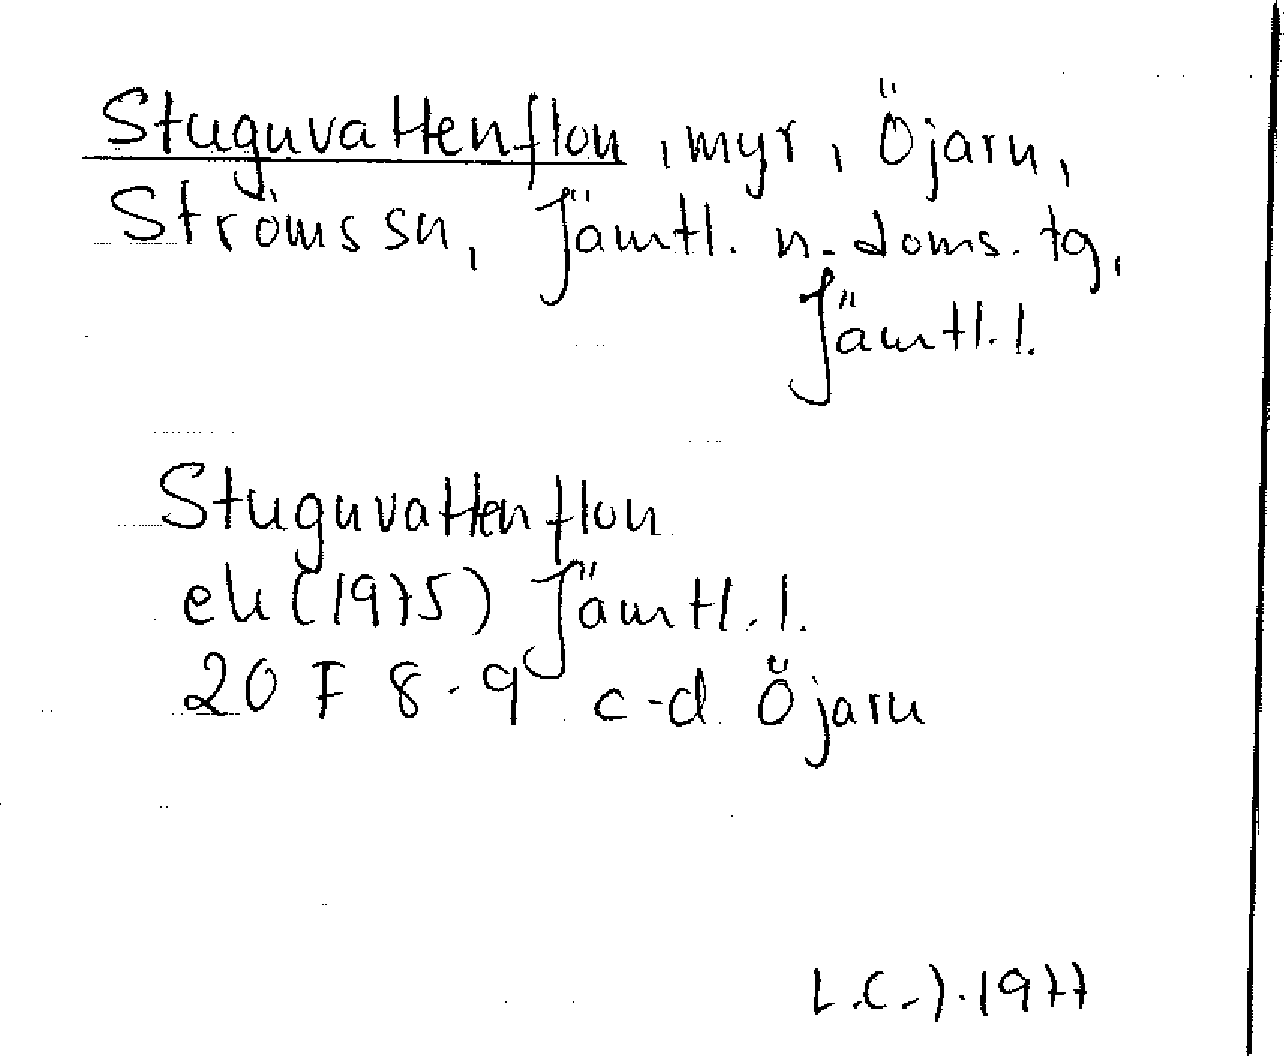 Stuguvattenflon, myr, Öjarn,
Ströms sn, Jämtl. n. doms. tg,
Jämtl. l.
Stuguvattenflon
ek (1975) Jämtl. l.
20 F 8-9 c-d Öjarn
L.C.J. 1977